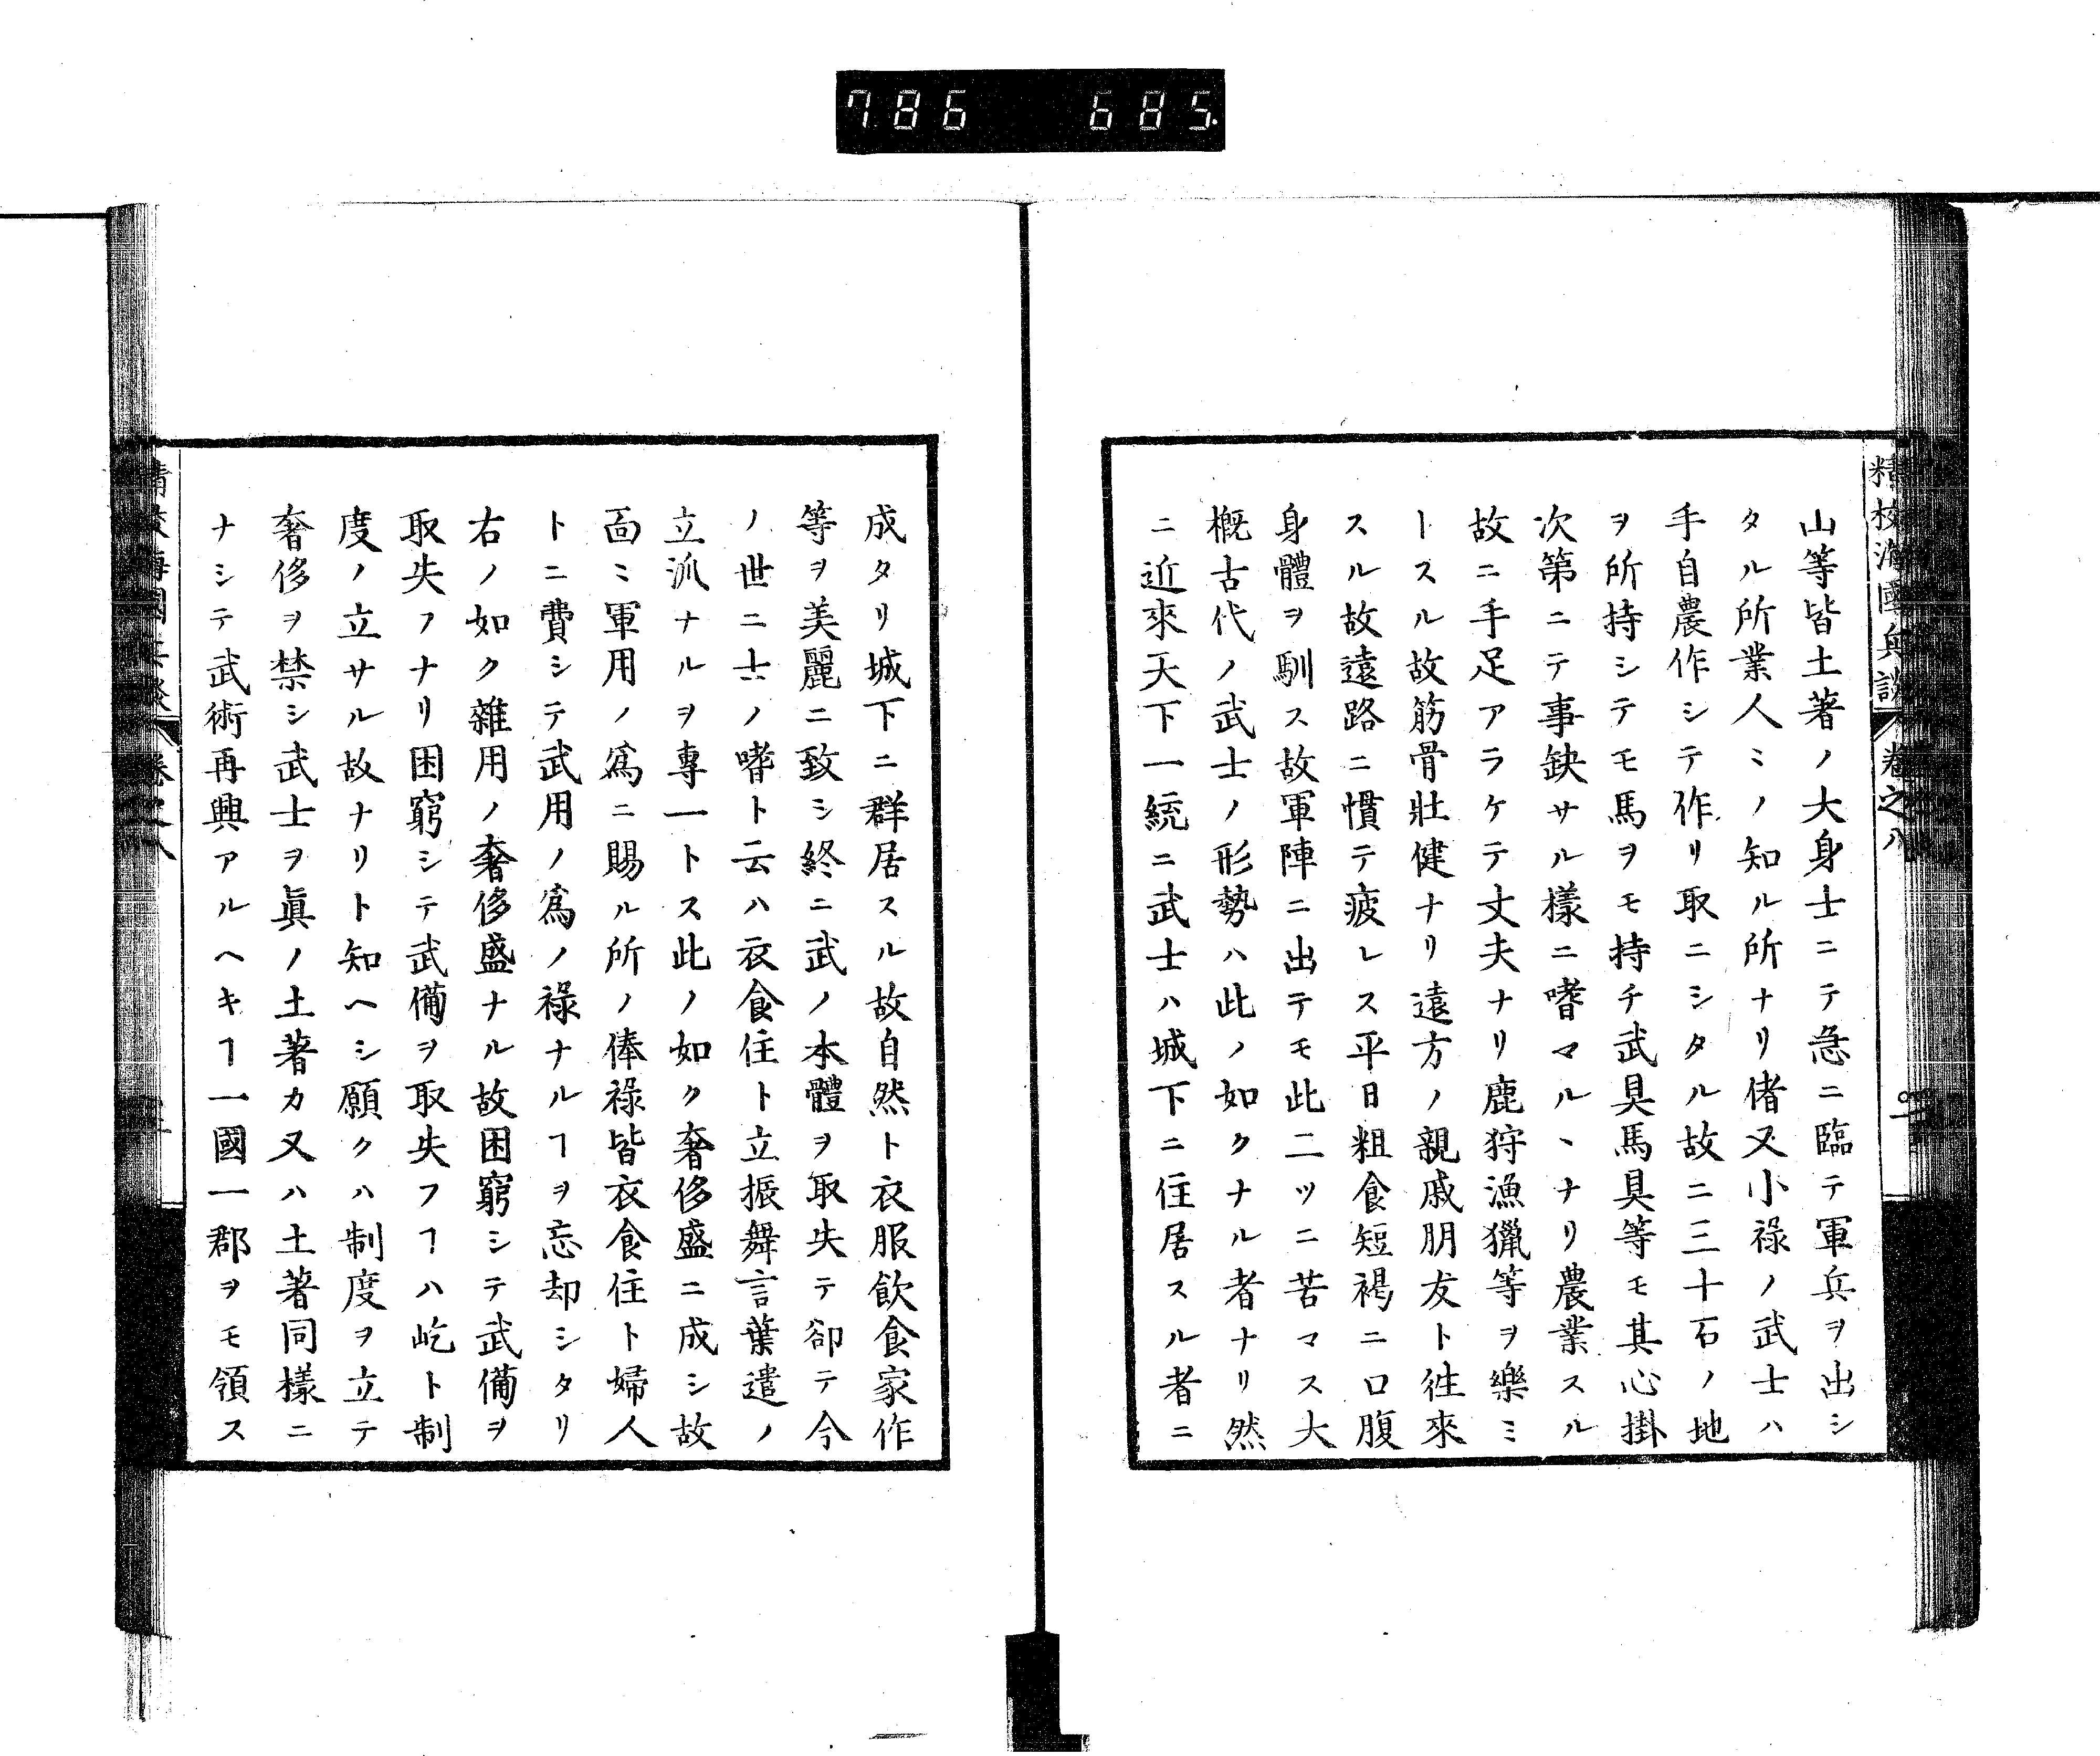 786 685
精校海國兵談 卷之八
山等皆土著ノ大身士ニテ急ニ臨テ軍兵ヲ出シ
タル所業人ミノ知ル所ナリ偖又小祿ノ武士ハ
手自農作シテ作リ取ニシタル故ニ三十石ノ地
ヲ所持シテモ馬ヲモ持チ武具馬具等モ其心掛
次第ニテ事缺サル樣ニ嗜マルヽナリ農業スル
故ニ手足アラケテ丈夫ナリ鹿狩漁獵等ヲ樂ミ
トスル故筋骨壯健ナリ遠方ノ親戚朋友ト徃來
スル故遠路ニ慣テ疲レス平日粗食短褐ニ口腹
身體ヲ馴ス故軍陣ニ出テモ此二ツニ苦マス大
概古代ノ武士ノ形勢ハ此ノ如クナル者ナリ然
ニ近來天下一統ニ武士ハ城下ニ住居スル者ニ
成タリ城下ニ群居スル故自然ト衣服飲食家作
等ヲ美麗ニ致シ終ニ武ノ本體ヲ取失テ卻テ今
ノ世ニ士ノ嗜ト云ハ衣食住ト立振舞言葉遣ノ
立派ナルヲ專一トス此ノ如ク奢侈盛ニ成シ故
面ミ軍用ノ爲ニ賜ル所ノ俸祿皆衣食住ト婦人
トニ費シテ武用ノ爲ノ祿ナルヿヲ忘却シタリ
右ノ如ク雜用ノ奢侈盛ナル故困窮シテ武備ヲ
取失フナリ困窮シテ武備ヲ取失フヿハ屹ト制
度ノ立サル故ナリト知ヘシ願クハ制度ヲ立テ
奢侈ヲ禁シ武士ヲ眞ノ土著カ又ハ土著同樣ニ
ナシテ武術再興アルヘキヿ一國一郡ヲモ領ス